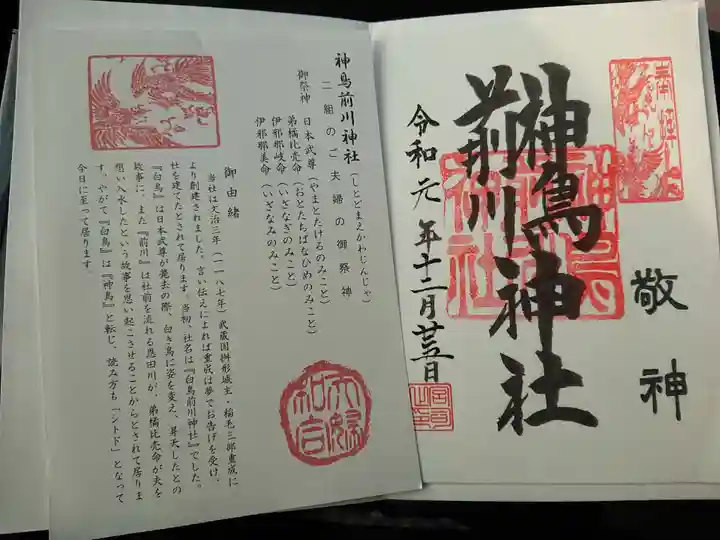 敬神
神鳥
前川神社
令和元年十二月廿五日
神鳥前川神社(しとどまえかわじんじゃ)
二組のご夫婦の御祭神
御祭神 日本武尊(やまとたけるのみこと)
弟橘比売命(おとたちばなひめのみこと)
伊邪那岐命(いざなぎのみこと)
伊邪那美命(いざなみのみこと)
御由緒
当社は文治三年(一一八七年)武蔵国桝形城主・稲毛三郎重成に
より創建されました。言い伝えによれば重成は夢でお告げを受け、
社を建てたとされて居ります。当初、社名は『白鳥前川神社』でした。
『白鳥』は日本武尊が薨去の際、白き鳥に姿を変え、昇天したとの
故事に、また『前川』は社前を流れる恩田川が、弟橘比売命が夫を
想い入水したという故事を思い起こさせることからとされて居りま
す。やがて『白鳥』は『神鳥』と転じ、読み方も「シトド」となって
今日に至って居ります。
夫婦
和合